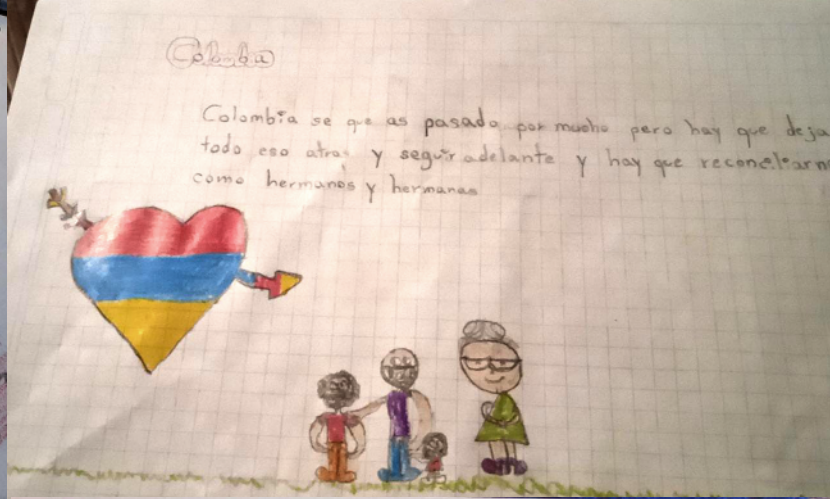 Colombia
Colombia se que as pasado por mucho pero hay que deja
todo eso atras y seguir adelante y hay que reconcelearn
como hermanos y hermanas